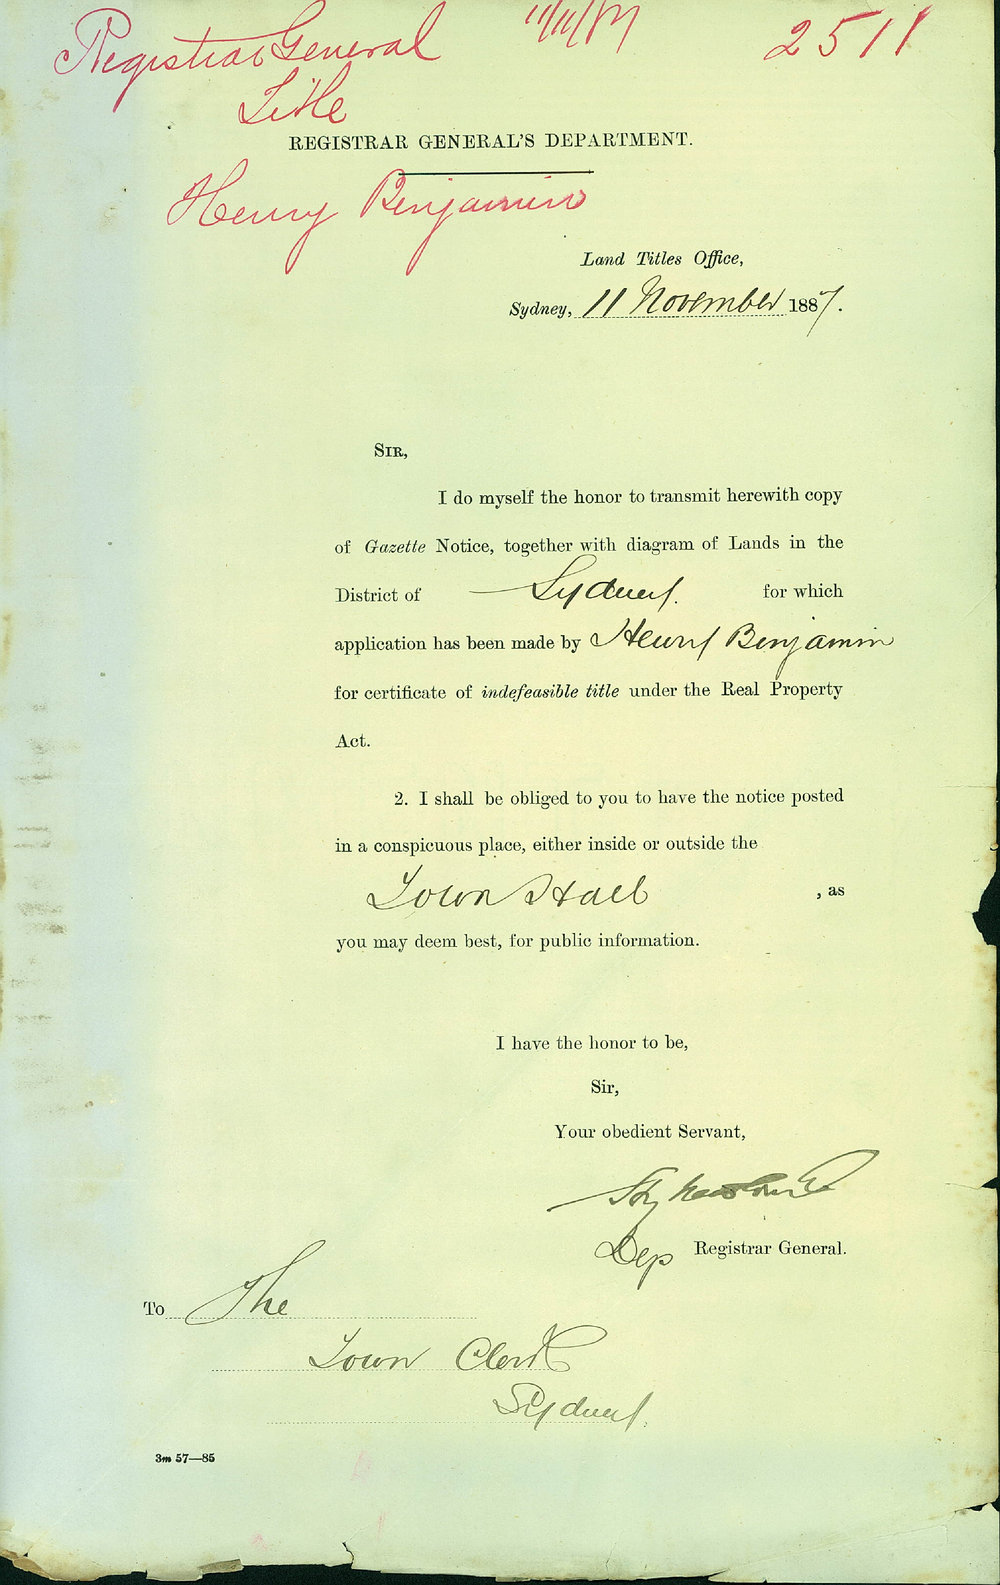 Registrar General 11/11/87 2511
Title
REGISTRAR GENERAL'S DEPARTMENT.
Henry Benjamin
Land Titles Office,
Sydney, 11 November 1887.
SIR,
I do myself the honor to transmit herewith copy
of Gazette Notice, together with diagram of Lands in the
District of Sydney. for which
application has been made by Henry Benjamin
for certificate of indefeasible title under the Real Property
Act.
2. I shall be obliged to you to have the notice posted
in a conspicuous place, either inside or outside the
Town Hall , as
you may deem best, for public information.
I have the honor to be,
Sir,
Your obedient Servant,
Dep Registrar General.
To The
Town Clerk
Sydney.
3m 57—85